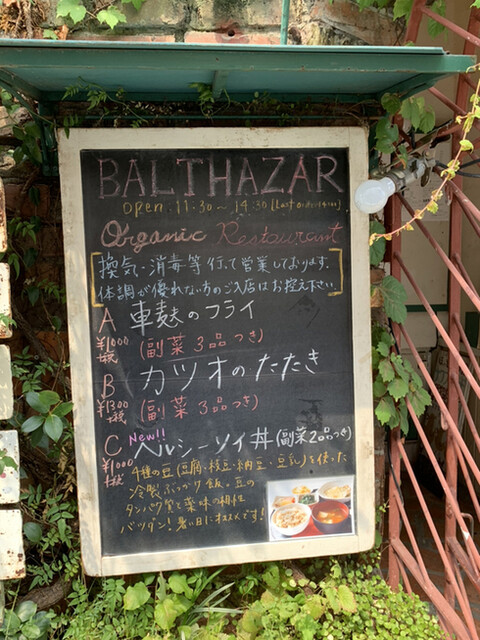 BALTHAZAR
open 11:30 ~ 14:30 [Last order 14:00]
Organic Restaurant
換気・消毒等行って営業しております。
体調が優れない方のご入店はお控え下さい。
A 車麩のフライ
¥1000 +税 (副菜3品つき)
B カツオのたたき
¥1300 +税 (副菜3品つき)
New!!
C ヘルシーソイ丼(副菜2品つき)
¥1000 +税
4種の豆(豆腐・枝豆・納豆・豆乳)を使った
冷製ぶっかけ飯、豆の
タンパク質と薬味の相性
バツグン!暑い日にオススメです!